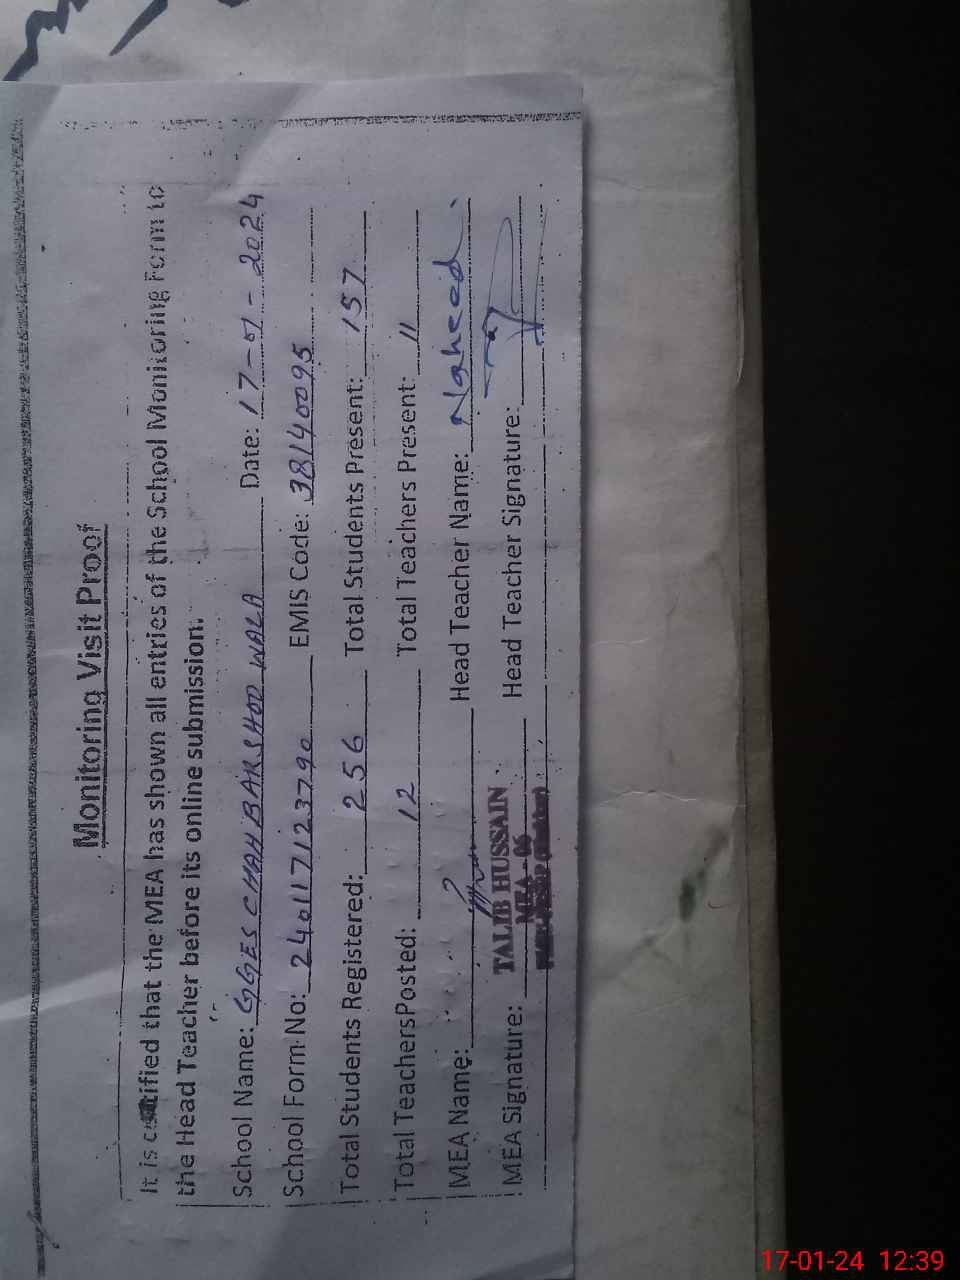 Monitoring Visit Proof
It is certified that the MEA has shown all entries of the School Monitoring Form to
the Head Teacher before its online submission.
School Name: GGES CHAH BARSHOO WALA Date: 17-01-2024
School Form No: 2401171123790 EMIS Code: 38140095
Total Students Registered: 256 Total Students Present: 157
Total TeachersPosted: 12 Total Teachers Present: 11
MEA Name: Head Teacher Name: Naheed
TALIB HUSSAIN
MEA - 06
MEA Signature: Head Teacher Signature:
17-01-24 12:39